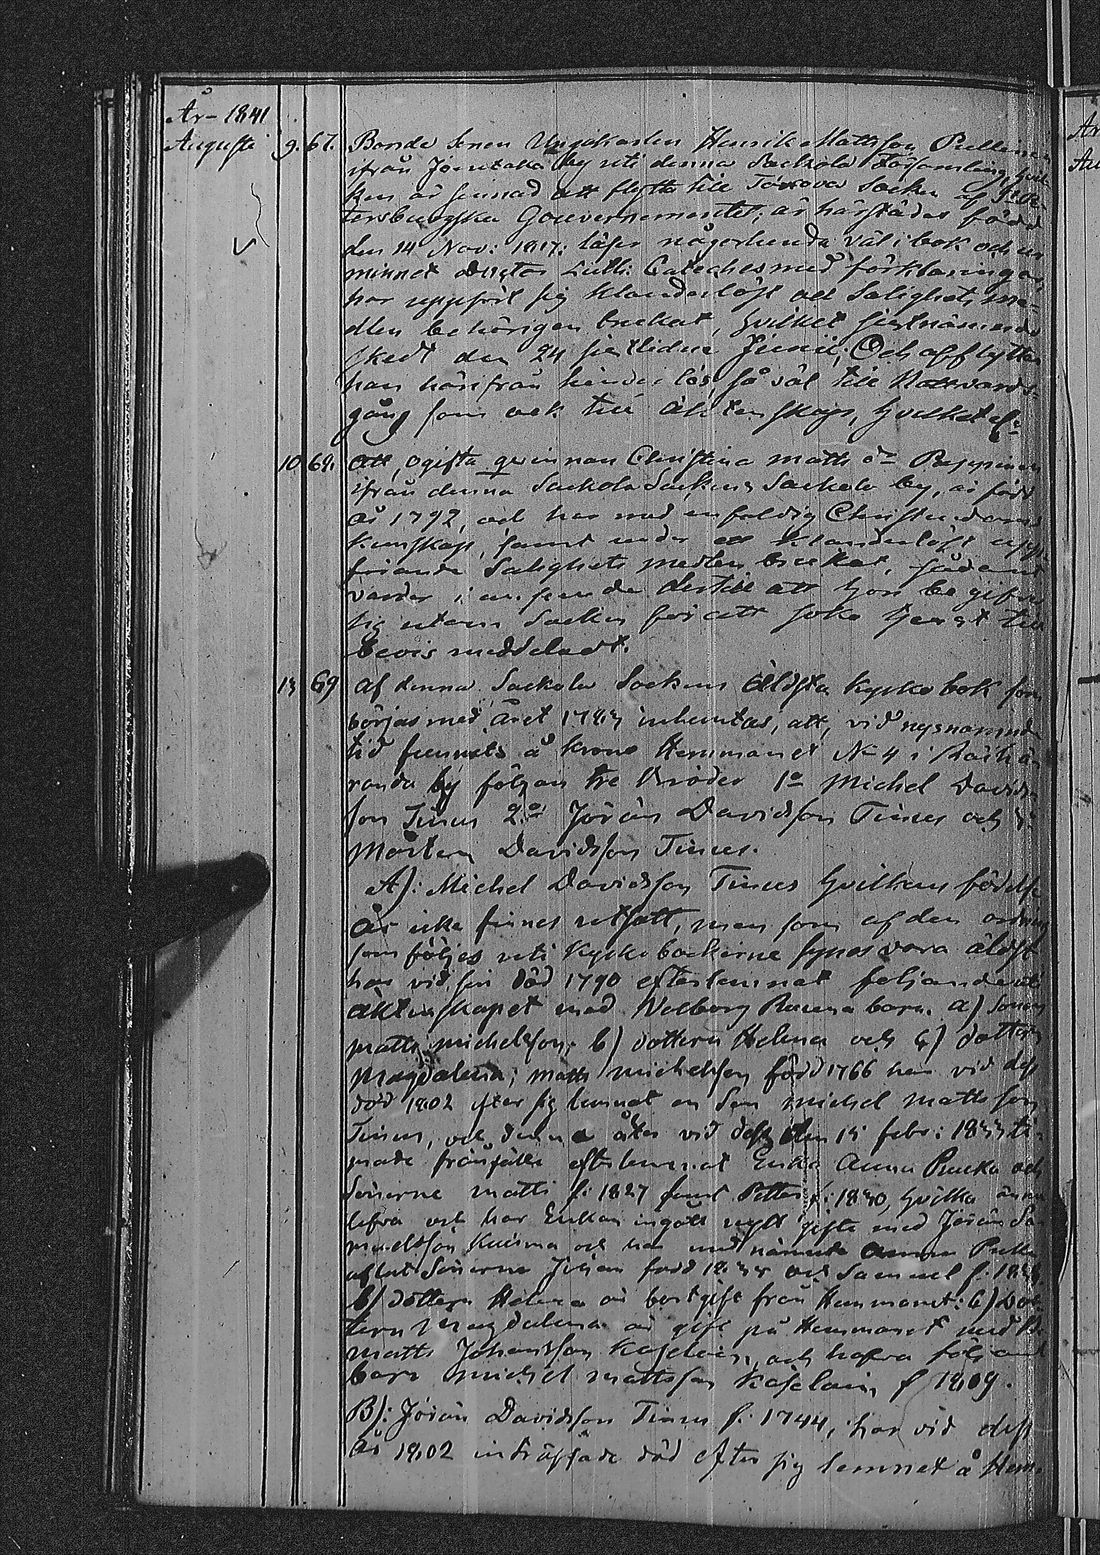 År 1841
Augusti 9. 67. Bonde Sonen Ungkarlen Henrik Mattsson
ifrån by uti denna Sackola Församling, hvil-
ken är sinnad att flytta till socken af St. Pe-
tersburgska Gouvernementet; är härstädes född
den 14 Nov: 1817: läser någorlunda väl i bok och ur
minnet Doctor Luth: Cateches med förklaringar
har uppfört sig klanderlöst och Salighets me-
dlen behörigen brukat, hvilket sistnämnde
skedt den 24 sistlidne Junii, Och afflyttar
han härifrån hinderlös så väl till Nattvards-
gång som ock till äktenskap, hvilket &c
10 68. Att ogifta qvinnan Christina Matts dr Pappinen
ifrån denna Sackola Sockens Sackola by, är född
år 1792, och har med enfaldig Christendoms
kunskap, samt under ett klanderlöst upp-
förande Salighets medlen brukat, sådant
varder i anseende dertill att hon begifver
sig utom Socken för att söka tjenst till
bevis meddeladt.
13 69 Af denna Sackola Sockens äldsta kyrko bok som
börjas med året 1783 inhemtas, att vid nyssnämnde
tid funnits å Krono Hemmanet No 4 i
randa by följan tre bröder 1o Michel Davids-
son Tinus 2o Jöran Davidsson Tinus och 3:
Mårten Davidsson Tinus.
A): Michel Davidsson Tinus hvilkens födelse
år icke finnes utsatt, men som af den ordning
som följes uti kyrkobockerne synes vara äldst
har vid sin död 1790 efterlemnat följande uti
äktenskapet med Walborg barn. a) Sonen
Matts Michelsson, b) dottern Helena och c) dottern
Magdalena; Matts Michelsson född 1766 har vid dess
död 1802 efter sig lemnat en Son Michel Mattsson
Tinus, och denne åter vid dess den 15 Febr: 1833 ti-
made frånfälle efterlemnat Enka Anna och
Sönerne Matts f: 1827 samt Petter f: 1830, hvilka ännu
lefva och har Enkan ingått nytt gifte med Jöran Sa-
muelsson Kuisma och har med nämnde Anna
aflat Sönerne Johan född och Samuel f:
b) dottern Helena är bortgift från Hemmanet: c) Dot-
tern Magdalena är gift på Hemmanet med
Matts Johansson och hafva följande
barn Michel Mattsson f 1809.
B): Jöran Davidsson Tinus f: 1744, har vid dess
år 1802 inträffade död efter sig lemnat å Hem-